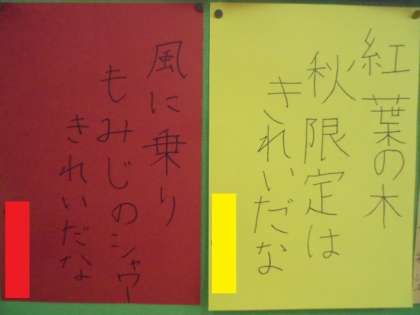 紅葉の木
秋限定は
きれいだな
風に乗り
もみじのシャワー
きれいだな